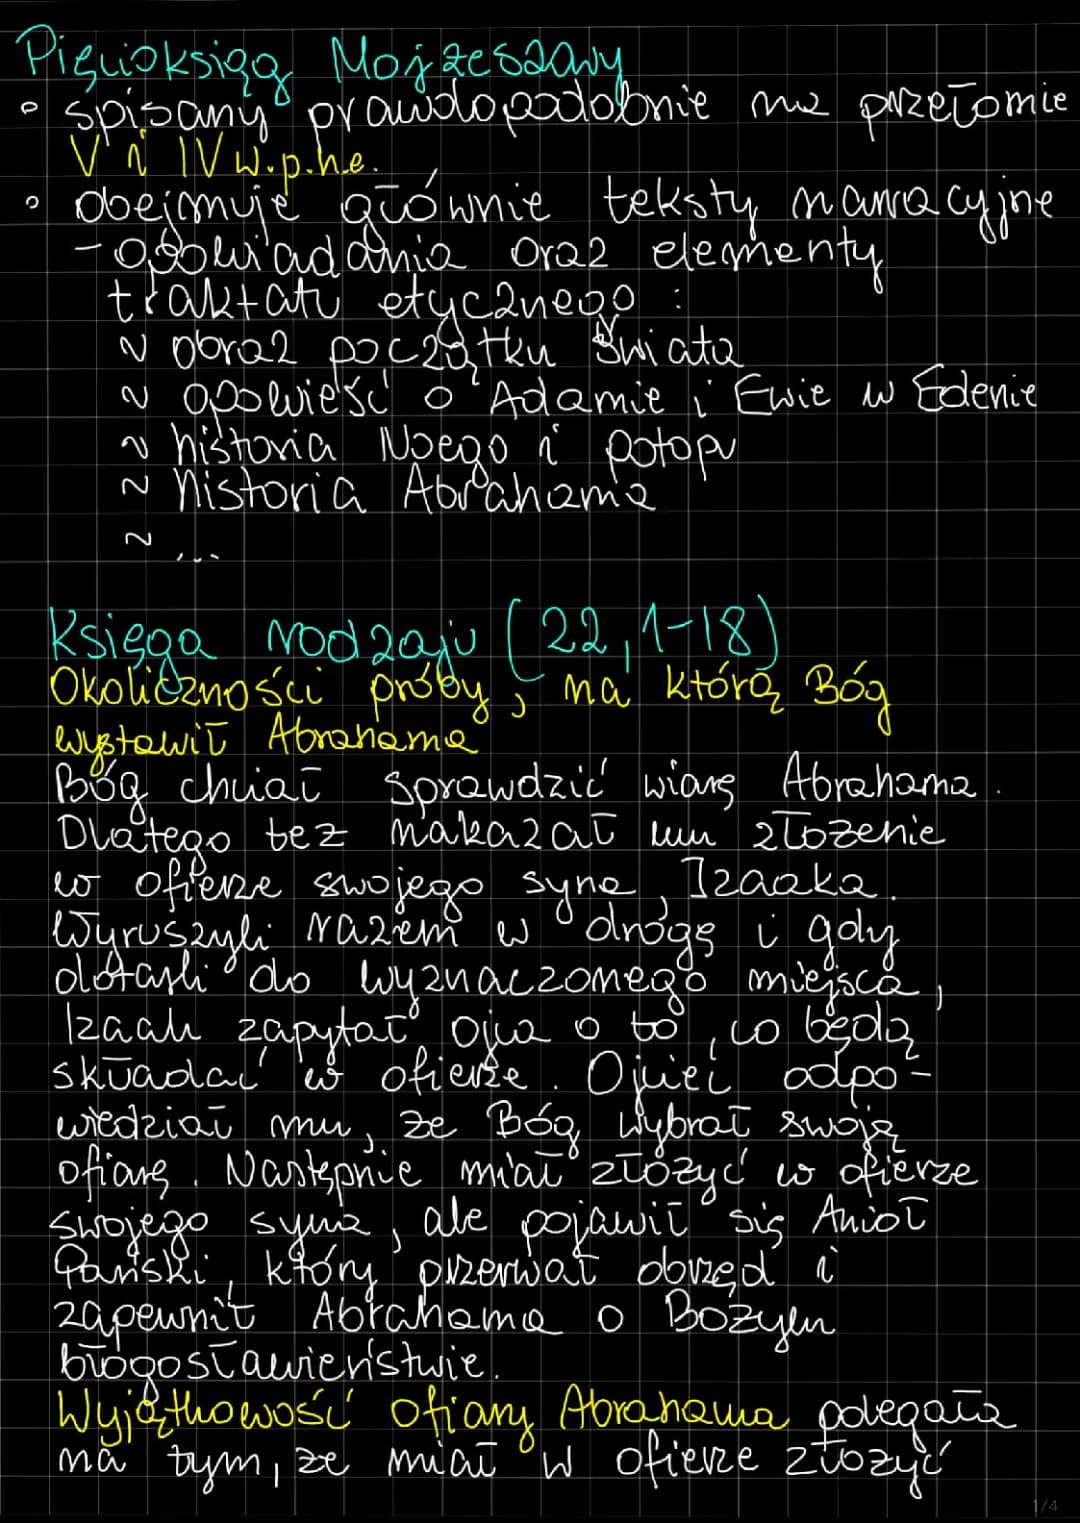 Pięcioksiąg Mojżeszowy
• spisany prawdopodobnie na przełomie
V i IV w.p.n.e.
• obejmuje głównie teksty narracyjne
- opowiadania oraz elementy
traktatu etycznego:
~ obraz początku świata
~ opowieść o Adamie i Ewie w Edenie
~ historia Noego i potopu
~ historia Abrahama
~ ...
Księga rodzaju (22,1-18)
Okoliczności próby, na którą Bóg
wystawił Abrahama
Bóg chciał sprawdzić wiarę Abrahama.
Dlatego też nakazał mu złożenie
w ofierze swojego syna, Izaaka.
Wyruszyli razem w drogę i gdy
dotarli do wyznaczonego miejsca,
Izaak zapytał ojca o to, co będą
składać w ofierze. Ojciec odpo-
wiedział mu, że Bóg wybrał swoją
ofiarę. Następnie miał złożyć w ofierze
swojego syna, ale pojawił się Anioł
Pański, który przerwał obrzęd i
zapewnił Abrahama o Bożym
błogosławieństwie.
Wyjątkowość ofiary Abrahama polegała
na tym, że miał w ofierze złożyć
1/4